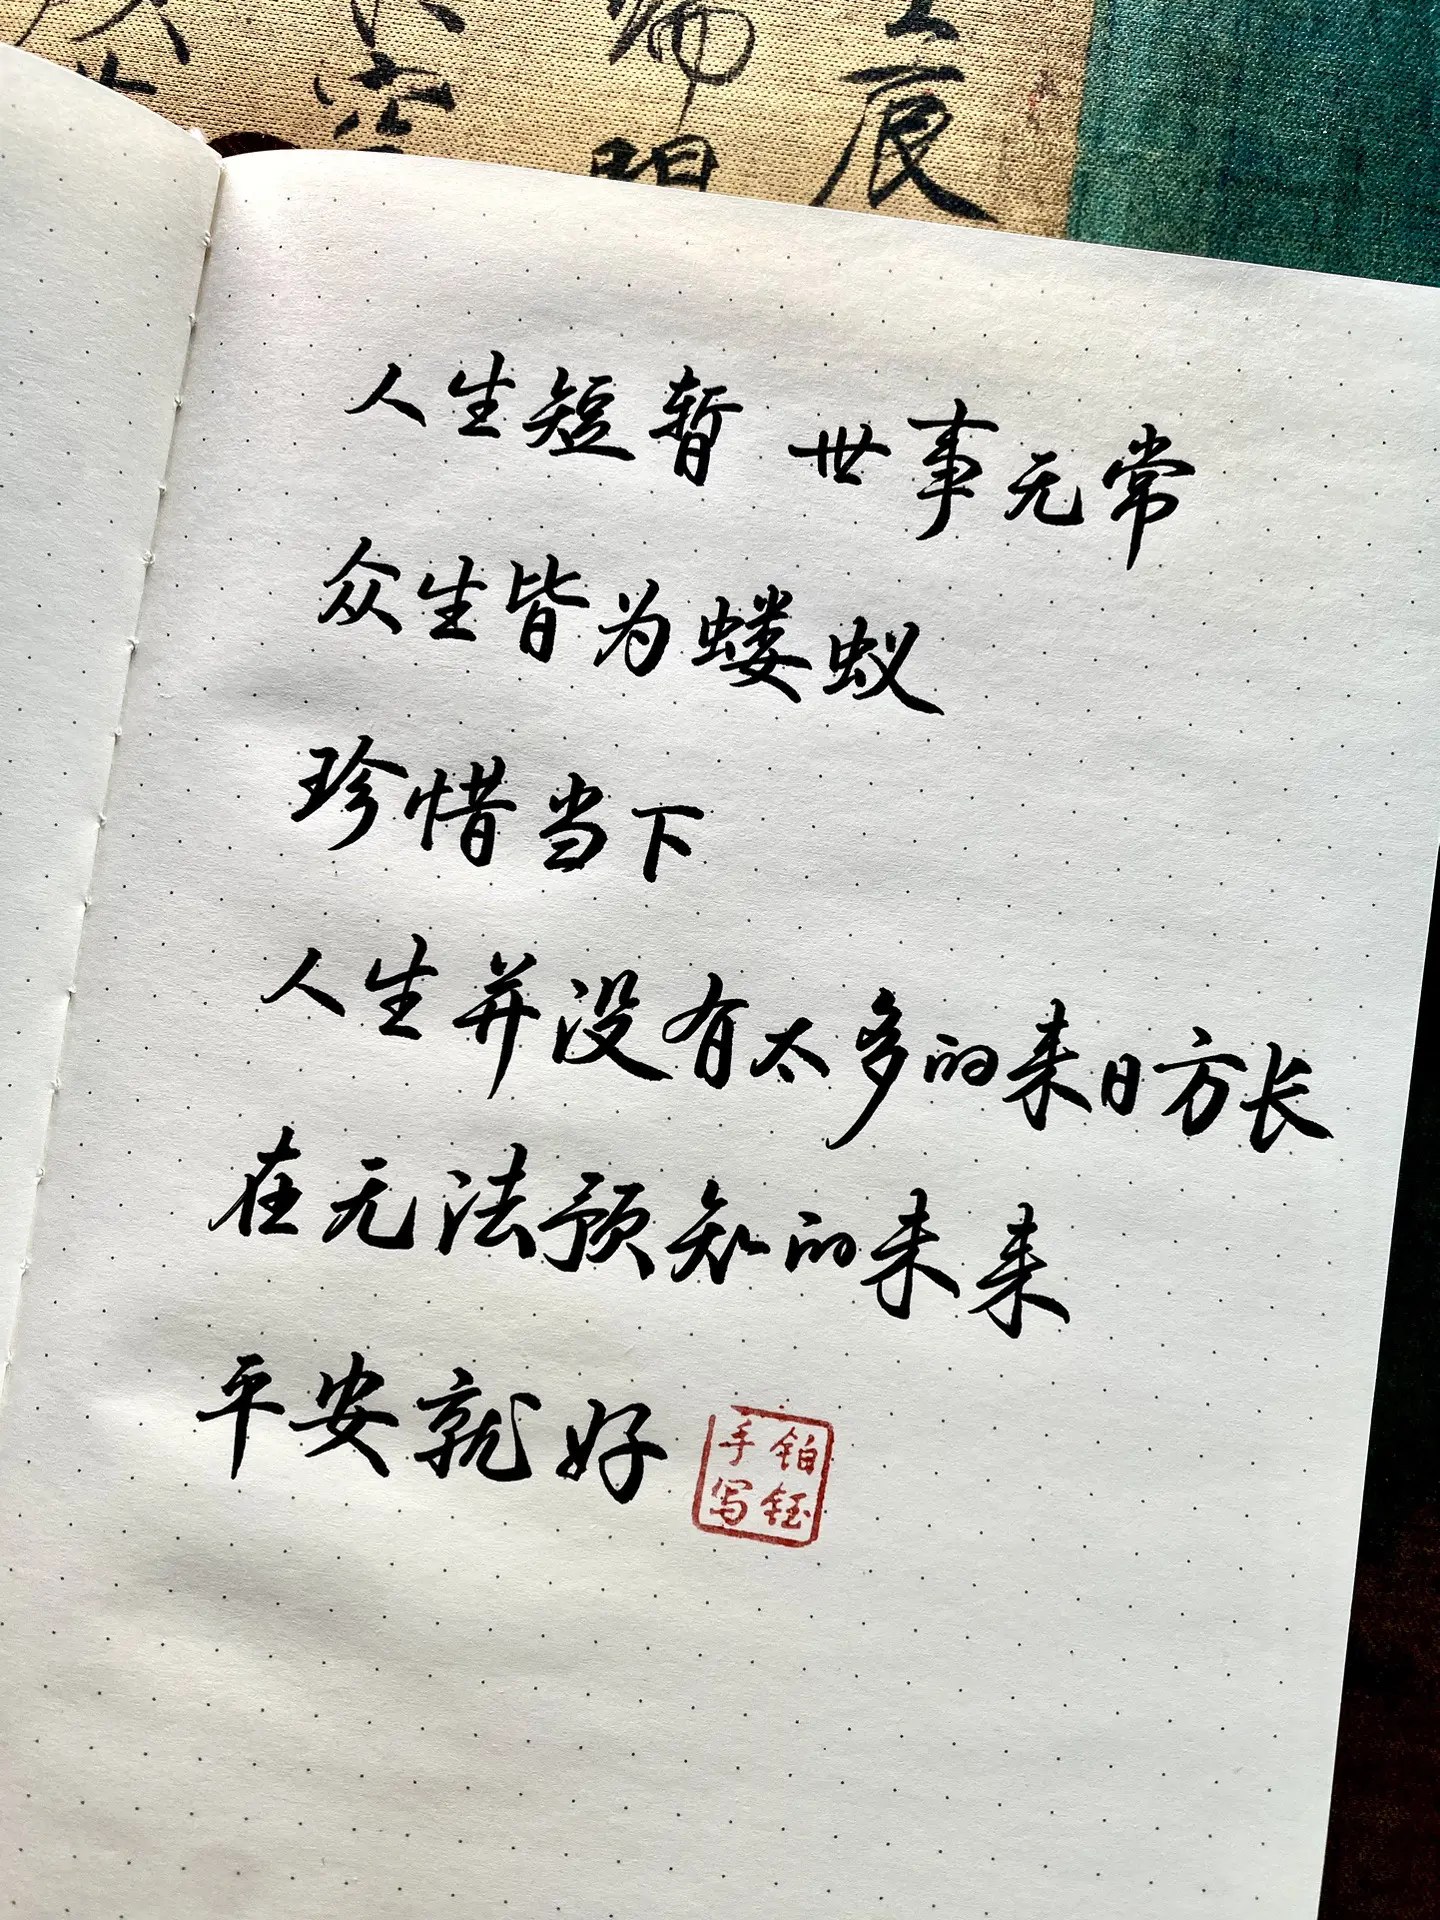 辰
端
門
人生短暂 世事无常
众生皆为蝼蚁
珍惜当下
人生并没有太多的来日方长
在无法预知的未来
平安就好
铂钰
手写